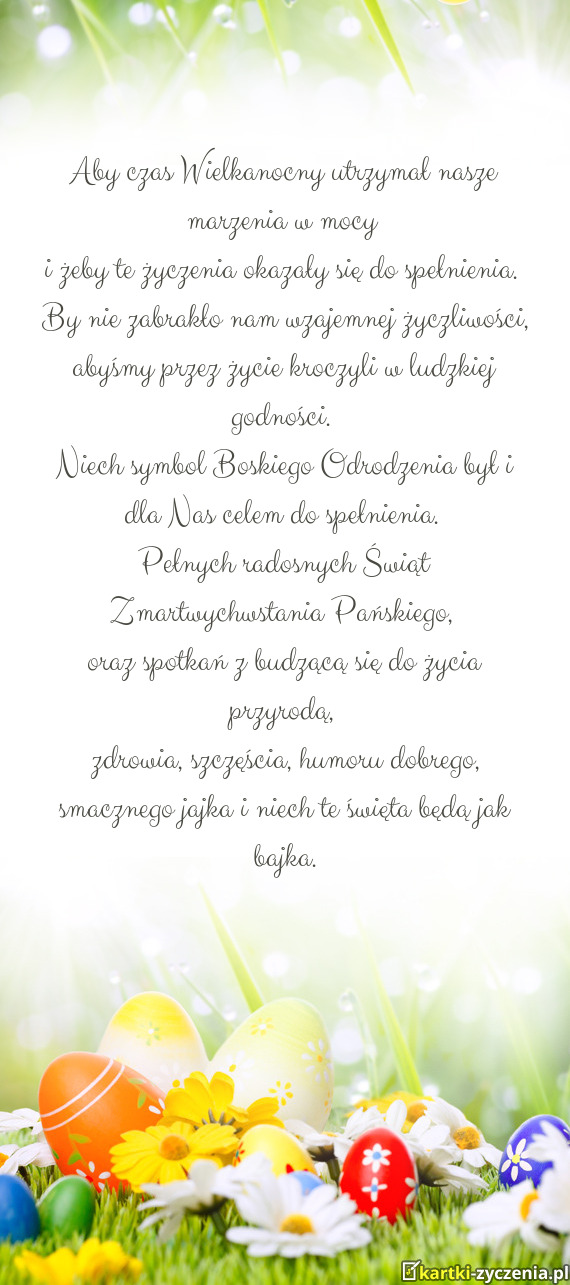 Aby czas Wielkanocny utrzymał nasze
marzenia w mocy
i żeby te życzenia okazały się do spełnienia.
By nie zabrakło nam wzajemnej życzliwości,
abyśmy przez życie kroczyli w ludzkiej
godności.
Niech symbol Boskiego Odrodzenia był i
dla Nas celem do spełnienia.
Pełnych radosnych Świąt
Zmartwychwstania Pańskiego,
oraz spotkań z budzącą się do życia
przyrodą,
zdrowia, szczęścia, humoru dobrego,
smacznego jajka i niech te święta będą jak
bajka.
kartki-zyczenia.pl